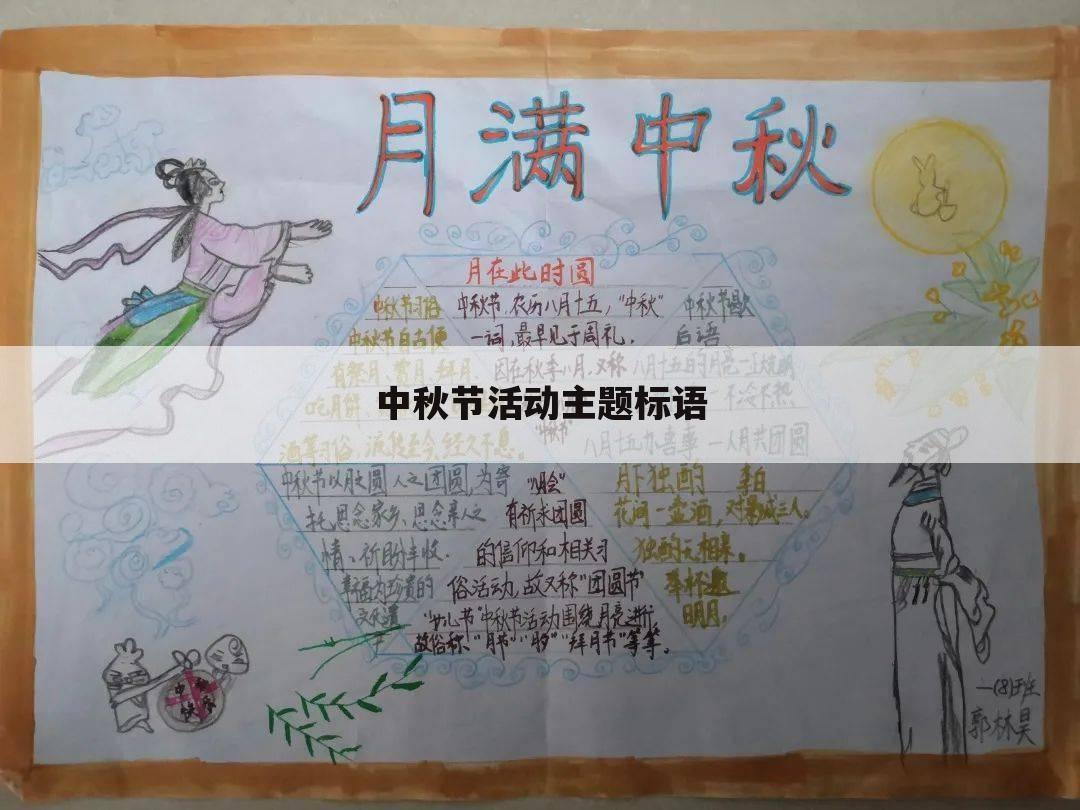 月满中秋
月在此时圆
中秋节习俗 中秋节,农历八月十五,"中秋" 中秋节歌
中秋节自古便 一词,最早见于周礼. 白语
有祭月、赏月、拜月、 因在秋季八月,又称 八月十五的月亮
吃月饼、 不冷不热
中秋节活动主题标语
酒等习俗,流传至今,经久不息。 八月十五办喜事 一人月共团圆
中秋节以月之圆 人之团圆,为寄 月下独酌 李白
托思念家乡、思念亲人之 有祈求团圆 花间一壶酒, 对影成三人。
情、祈盼丰收. 的信仰和相关习 独酌无相亲。
幸福为珍贵的 俗活动,故又称"团圆节" 举杯邀
文化遗 "女儿节"中秋节活动围绕月亮进行, 明月,
故俗称、"月节" "拜月节"等等。
中秋快乐
一(8)班
郭林昊